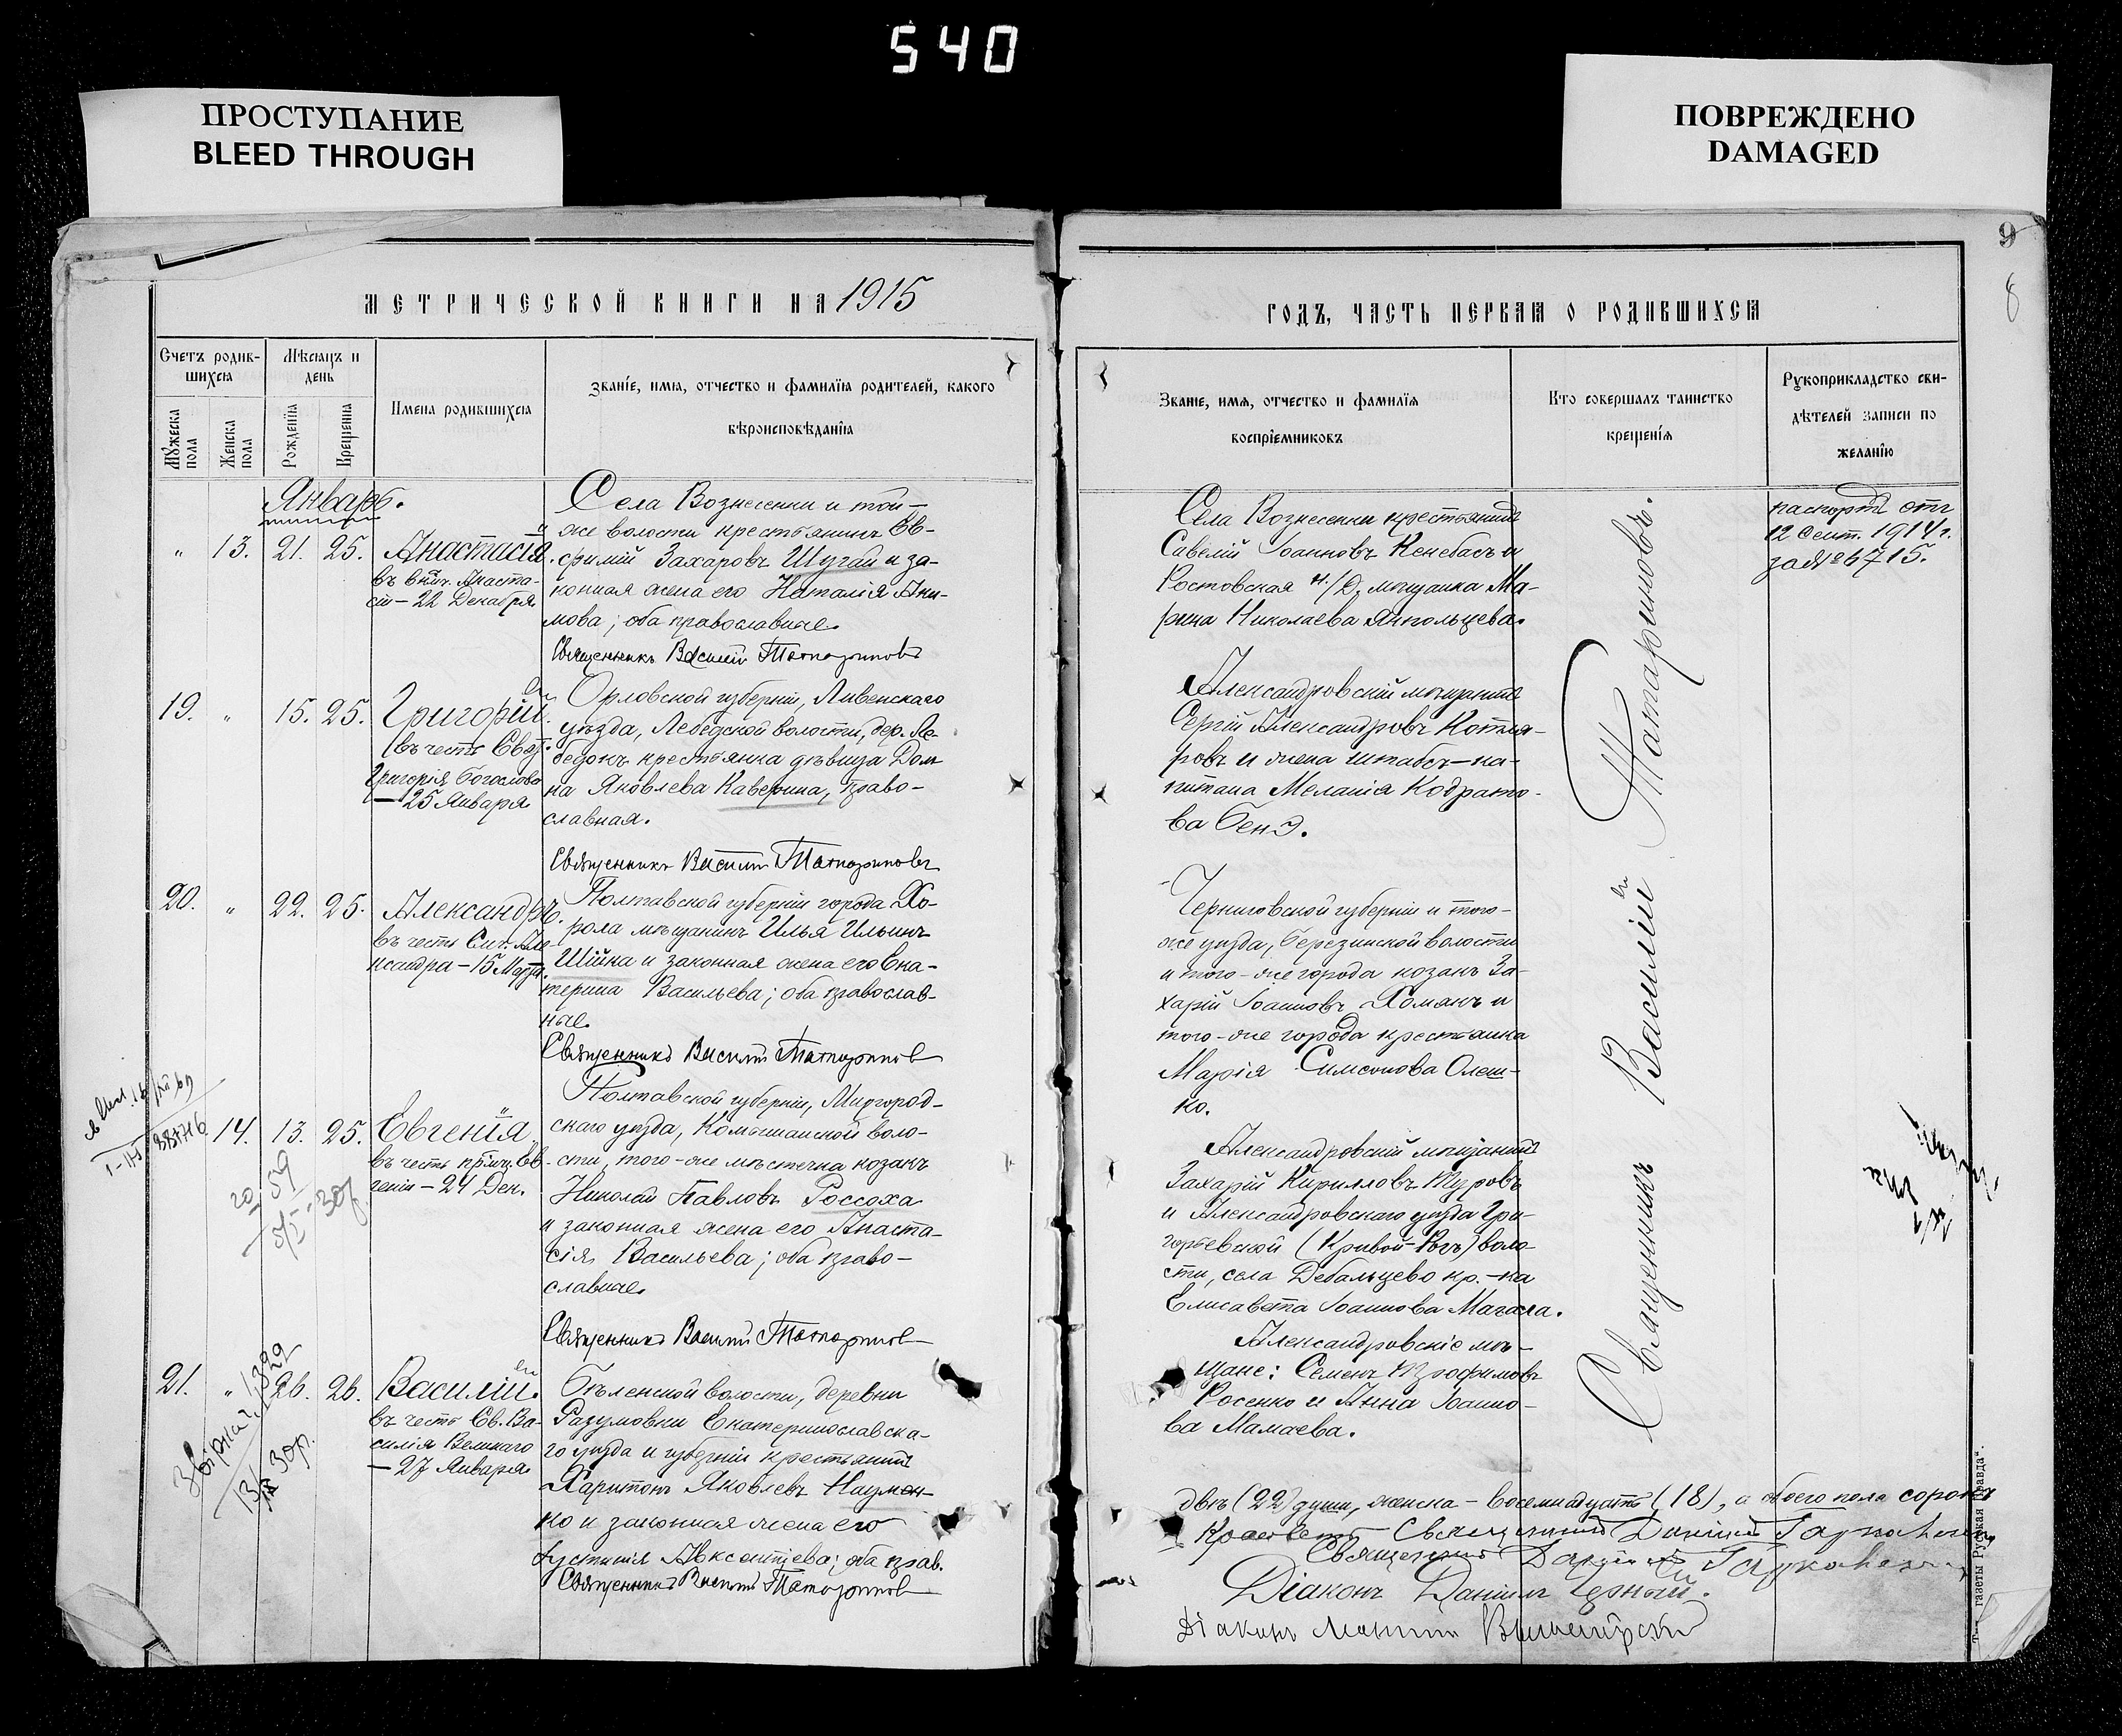 540
ПРОСТУПАНИЕ
BLEED THROUGH
ПОВРЕЖДЕНО
DAMAGED
9
8
МЕТРИЧЕСКОЙ КНИГИ НА 1915
ГОДЪ, ЧАСТЬ ПЕРВАЯ О РОДИВШИХСЯ
Счетъ родив-
шихся
Мѣсяцъ и
день
Мужеска
пола
Женска
пола
Рожденія
Крещенія
Имена родившихся
Званіе, имя, отчество и фамилія родителей, какого
вѣроисповѣданія
Званіе, имя, отчество и фамилія
воспріемниковъ
Кто совершалъ таинство
крещенія
Рукоприкладство сви-
дѣтелей записи по
желанію
Январь.
" 13. 21. 25. Анастасія.
въ Анаста-
сіи – 22 Декабря.
Села Вознесенки и той-
же волости крестьянинъ Ев-
фимій Захаровъ Шугай и за-
конная жена его Наталія Аки-
мова; оба православные.
Священникъ Василій Татариновъ
Села Вознесенки крестьянинъ
Савелій Іоанновъ Кенебасъ и
Ростовская н/Д. мѣщанка Ма-
рина Николаева Янпольцева.
паспортъ отъ
12 Сент. 1914 г.
за № 6715.
19. " 15. 25. Григорій.
въ честь Свят.
Григорія Богослова
– 25 Января
Орловской губерніи, Ливенскаго
уѣзда, Лебедской волости, дер. Ле-
бедокъ крестьянка дѣвица Дом-
на Яковлева Каверина, право-
славная.
Священникъ Василій Татариновъ
Александровскій мѣщанинъ
Сергій Александровъ Котля-
ровъ и жена штабсъ-ка-
питана Меланія Кодрато-
ва Бенэ.
20. " 22. 25. Александръ.
въ честь Але-
ксандра – 15 Марта.
Полтавской губерніи города Хо-
рола мѣщанинъ Илья Ильинъ
Шійка и законная жена его Ека-
терина Васильева; оба православ-
ные.
Священникъ Василій Татариновъ
Черниговской губерніи и того-
же уѣзда, Березинской волости
и того-же города козакъ За-
харій Іоанновъ Хоманъ и
того-же города крестьянка
Марія Симеонова Олеш-
ко.
14. 13. 25. Евгенія
въ честь Ев-
геніи – 24 Дек.
Полтавской губерніи, Миргород-
скаго уѣзда, Комышанской воло-
сти, того-же мѣстечка козакъ
Николай Павловъ Россоха
и законная жена его Анаста-
сія Васильева; оба право-
славные.
Священникъ Василій Татариновъ
Александровскій мѣщанинъ
Захарій Кирилловъ Туровъ
и Александровскаго уѣзда Гри-
горьевской (Кривой-Рогъ) воло-
сти, села Дебальцево кр.-ка
Елисавета Іоаннова Магала.
21. " 26. 26. Василій.
въ честь Св. Ва-
силія Великаго
– 27 Января.
Бѣленской волости, деревни
Разумовки Екатеринославска-
го уѣзда и губерніи крестьянинъ
Харитонъ Яковлевъ Наумен-
ко и законная жена его
Іустинія Авксентіева; оба прав.
Священникъ Василій Татариновъ
Александровскіе мѣ-
щане: Семенъ Трофимовъ
Росенко и Анна Іоанно-
ва Мамаева.
Священникъ Василій Татариновъ.
двѣ (22) души, женска – восемнадцать (18), а обоего пола сорокъ
Священникъ
Священникъ
Діаконъ Даніилъ Черный.
Діаконъ
газеты Русская Правда".